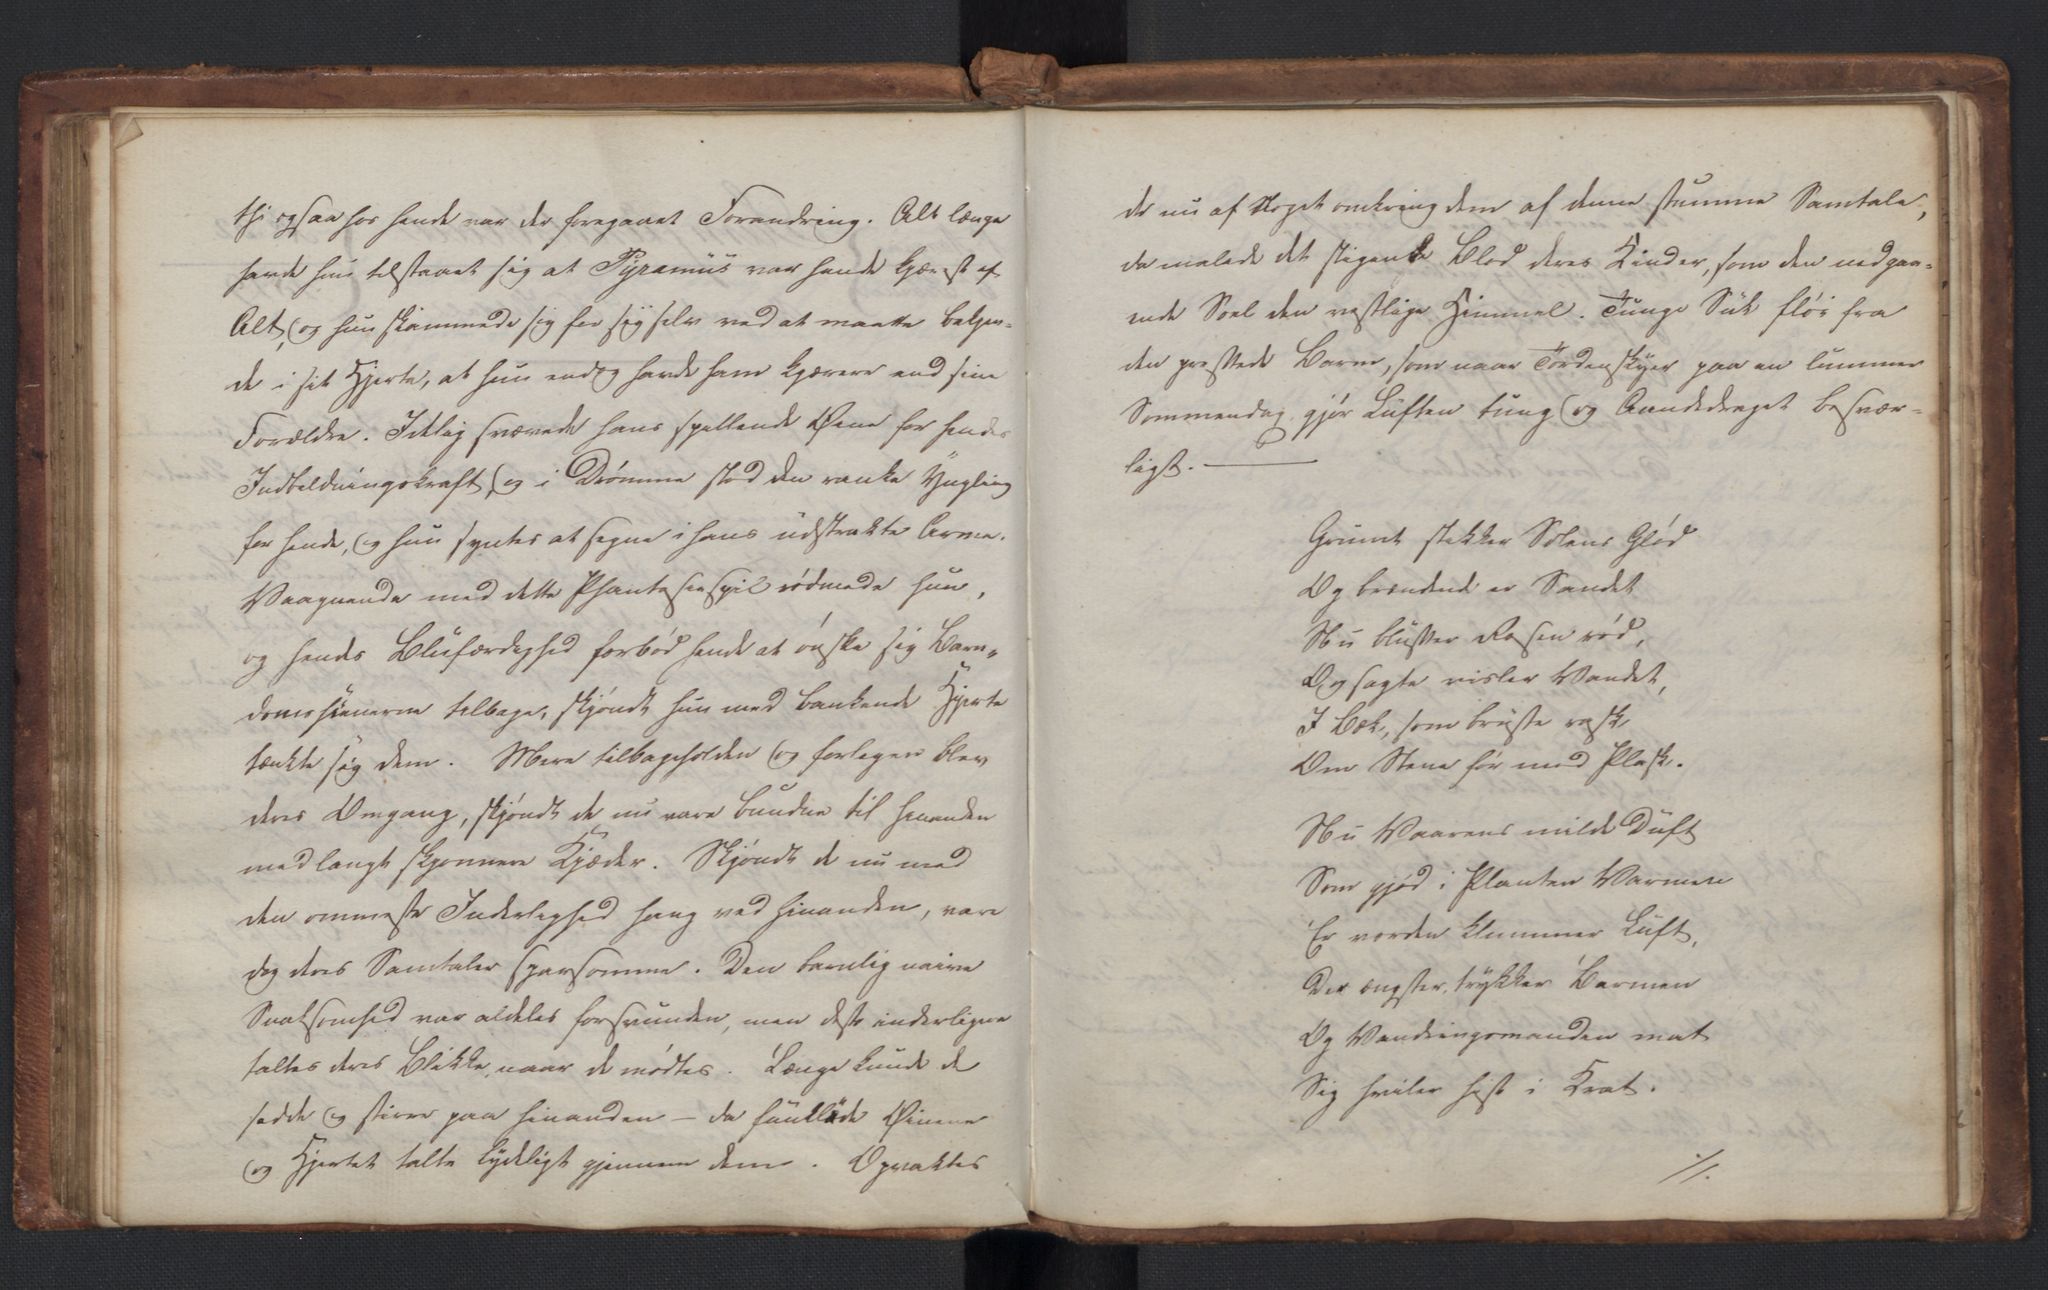 thi ogsaa hos hende var der foregaaet Forandring. Alt længe
havde hun tilstaaet sig at Pyramus var hende kjærest af
Alt, og hun skammede sig for sig selv ved at maatte bekjen-
de i sit Hjerte, at hun endog havde ham kjærere end sine
Forældre. Idelig svævede hans spillende Øine for hendes
Indbildningskraft, og i Drømme stod den ranke Yngling
for hende, og hun syntes at segne i hans udstrakte Arme.
Vaagnende med dette Phantasiespil rødmede hun,
og hendes Blufærdighed forbød hende at ønske sig Barn-
domsscenerne tilbage, skjøndt hun med bankende Hjerte
tænkte sig dem. Mere tilbageholden og forlegen blev
deres Omgang, skjøndt de nu vare bundne til hinanden
med langt skjønnere Kjæder. Skjøndt de nu med
den ømmeste Inderlighed hang ved hinanden, vare
dog deres Samtaler sparsomme. Den barnlig naive
Snaksomhed var aldeles forsvunden, men desto inderligere
taltes deres Blikke, naar de mødtes. Længe kunde de
sidde og stirre paa hinanden – da funklede Øinene
og Hjertet talte lydeligt gjennem dem. Opvaktes
de nu af Noget omkring dem af denne stumme Samtale,
da malede det stigende Blod deres Kinder, som den nedgaa-
ende Soel den vestlige Himmel. Tunge Suk fløi fra
den pressede Barm, som naar Tordenskyer paa en lummer
Sommerdag gjør Luften tung og Aandedraget besvær-
ligt. —
Grumt stekker Solens Glød
Og brændende er Sandet
Nu blusser Rosen rød,
Og sagte risler Vandet,
I Bæk, som bruste rask
Om Stene før med Plask.
Nu Vaarens milde Duft
Som gjød i Planten Varmen
Er vorden klummer Luft,
Der ængster, trykker Barmen
Og Vandringsmanden mat
Sig hviler hist i Krat.
./.